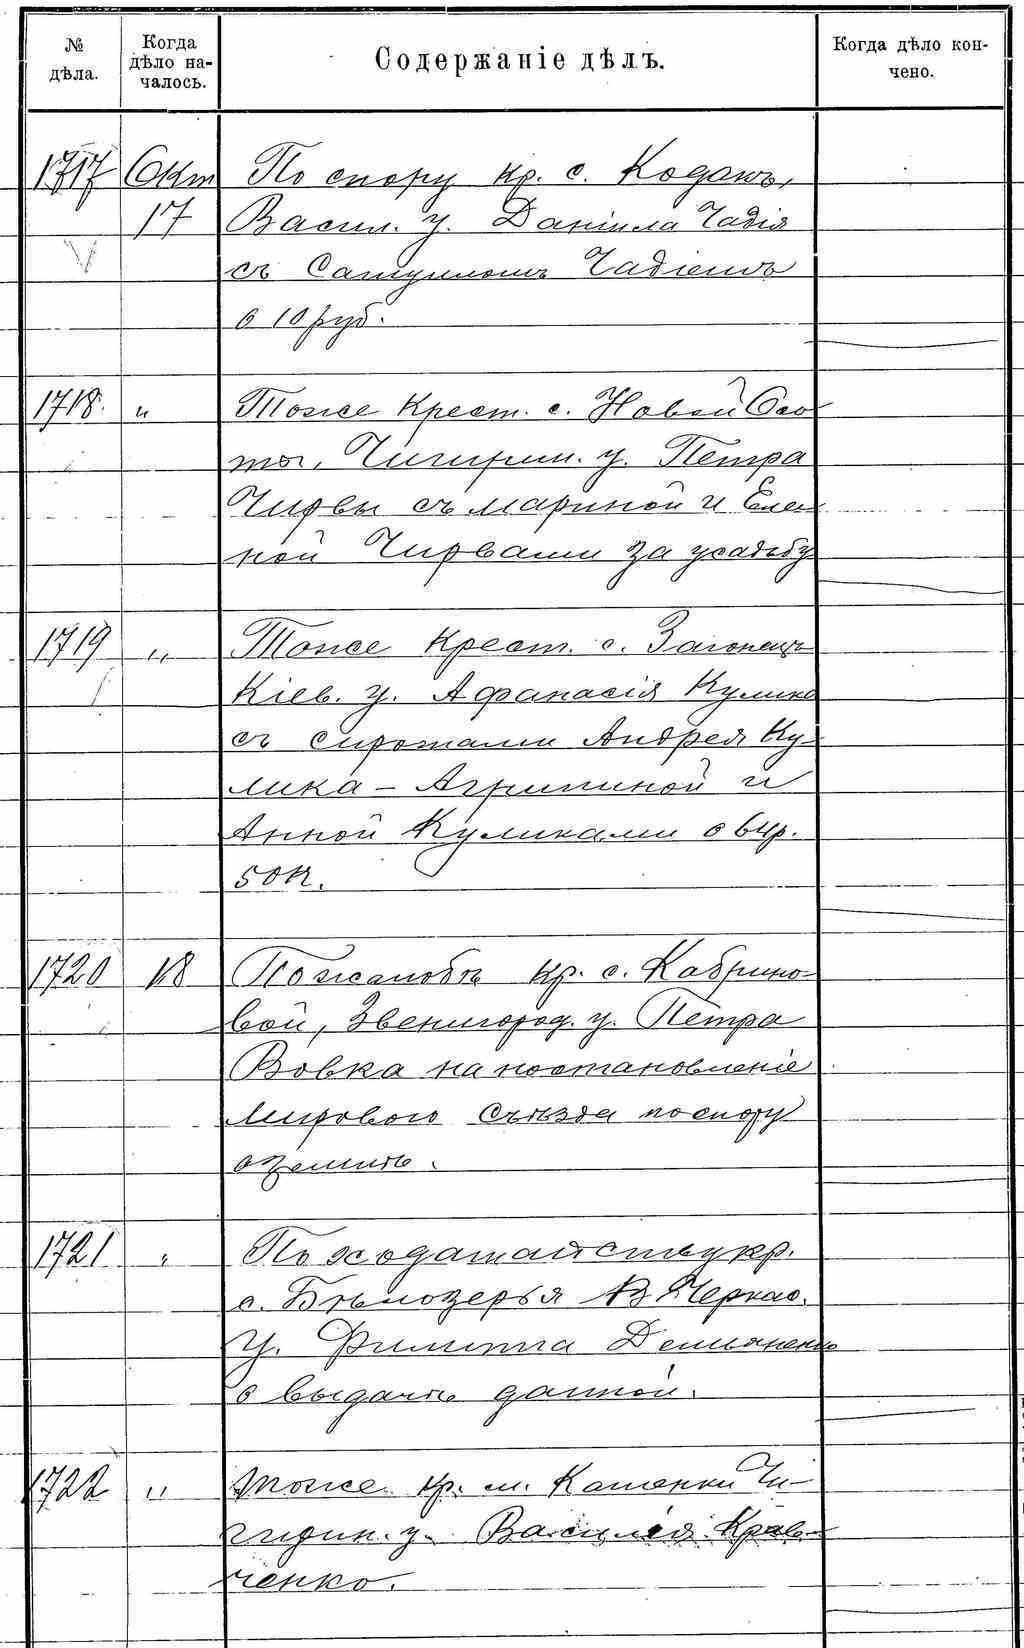 № дѣла.
Когда дѣло началось.
Содержаніе дѣлъ.
Когда дѣло кончено.
1717 Окт По спору кр. с. Кодакъ,
17 Васил. у. Даніила Чадія
съ Самуиломъ Чадіемъ
о 10 руб.
1718. " Тоже крест. с. Новой Осо-
ты, Чигирин. у. Петра
Чирвы съ Мариной и Еле-
ной Чирвами за усадьбу
1719 " Тоже крест. с.
Кіев. у. Афанасія Кулика
съ сиротами Андрея Ку-
лика - Агрипиной и
Анной Куликами о 64р.
50к.
1720 18 По жалобѣ кр. с. Кабрино-
вой, Звенигород. у. Петра
Вовка на постановленіе
Мирового Съѣзда по спору
о землѣ.
1721 " По ходатайству кр.
с. Бѣлозерья Черкас.
у. Филиппа Демьяненко
о выдачѣ данной.
1722 " тоже кр. м. Каменки Чи-
гирин. у. Василія Крав-
ченко.